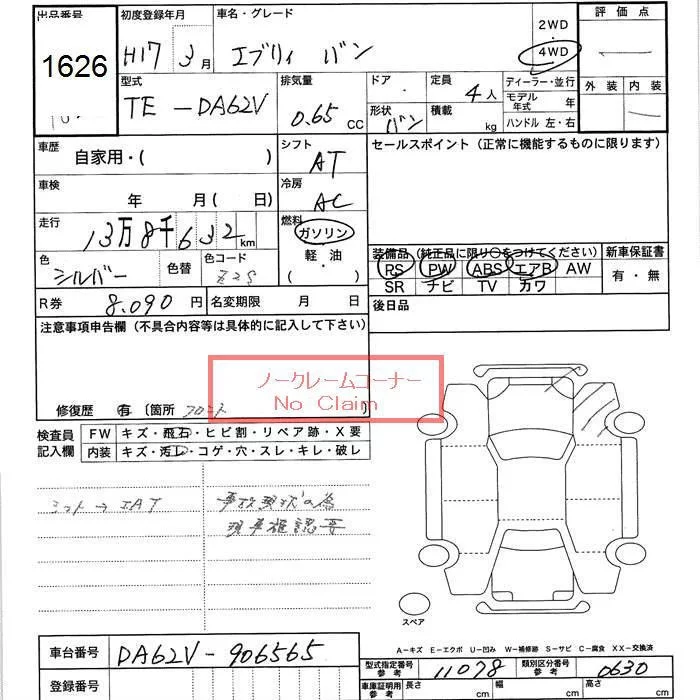 出品番号 初度登録年月 車名・グレード 2WD 評価点
1626 H17年3月 エブリィ バン 4WD
型式 排気量 ドア 定員 ディーラー・並行 外装 内装
TE-DA62V 0.65 CC 形状 バン 積載 kg 4人 モデル年式 年
ハンドル 左・右
車歴 自家用・( ) シフト AT セールスポイント (正常に機能するものに限ります)
車検 年 月( 日) 冷房 AC
走行 13万8千632km 燃料 ガソリン
軽油
( )
装備品 (純正品に限り○をつけてください) 新車保証書
色 シルバー 色替 色コード Z2S
RS PW ABS エアB AW 有・無
SR ナビ TV カワ
R券 8.090円 名変期限 月 日 後日品
注意事項申告欄 (不具合内容等は具体的に記入して下さい)
ノークレームコーナー
No Claim
修復歴 有 〔箇所 フロント
検査員記入欄 FW キズ・飛石・ヒビ割・リペア跡・X要
内装 キズ・汚レ・コゲ・穴・スレ・キレ・破レ
事故現状の為
現車確認要
スペア
A-キズ E-エクボ U-凹み W-補修跡 S-サビ C-腐食 XX-交換済
車台番号 DA62V-906565
型式指定番号 参考 11078 類別区分番号 参考 0630
登録番号
車庫証明用 参考 長さ cm 幅 cm 高さ cm